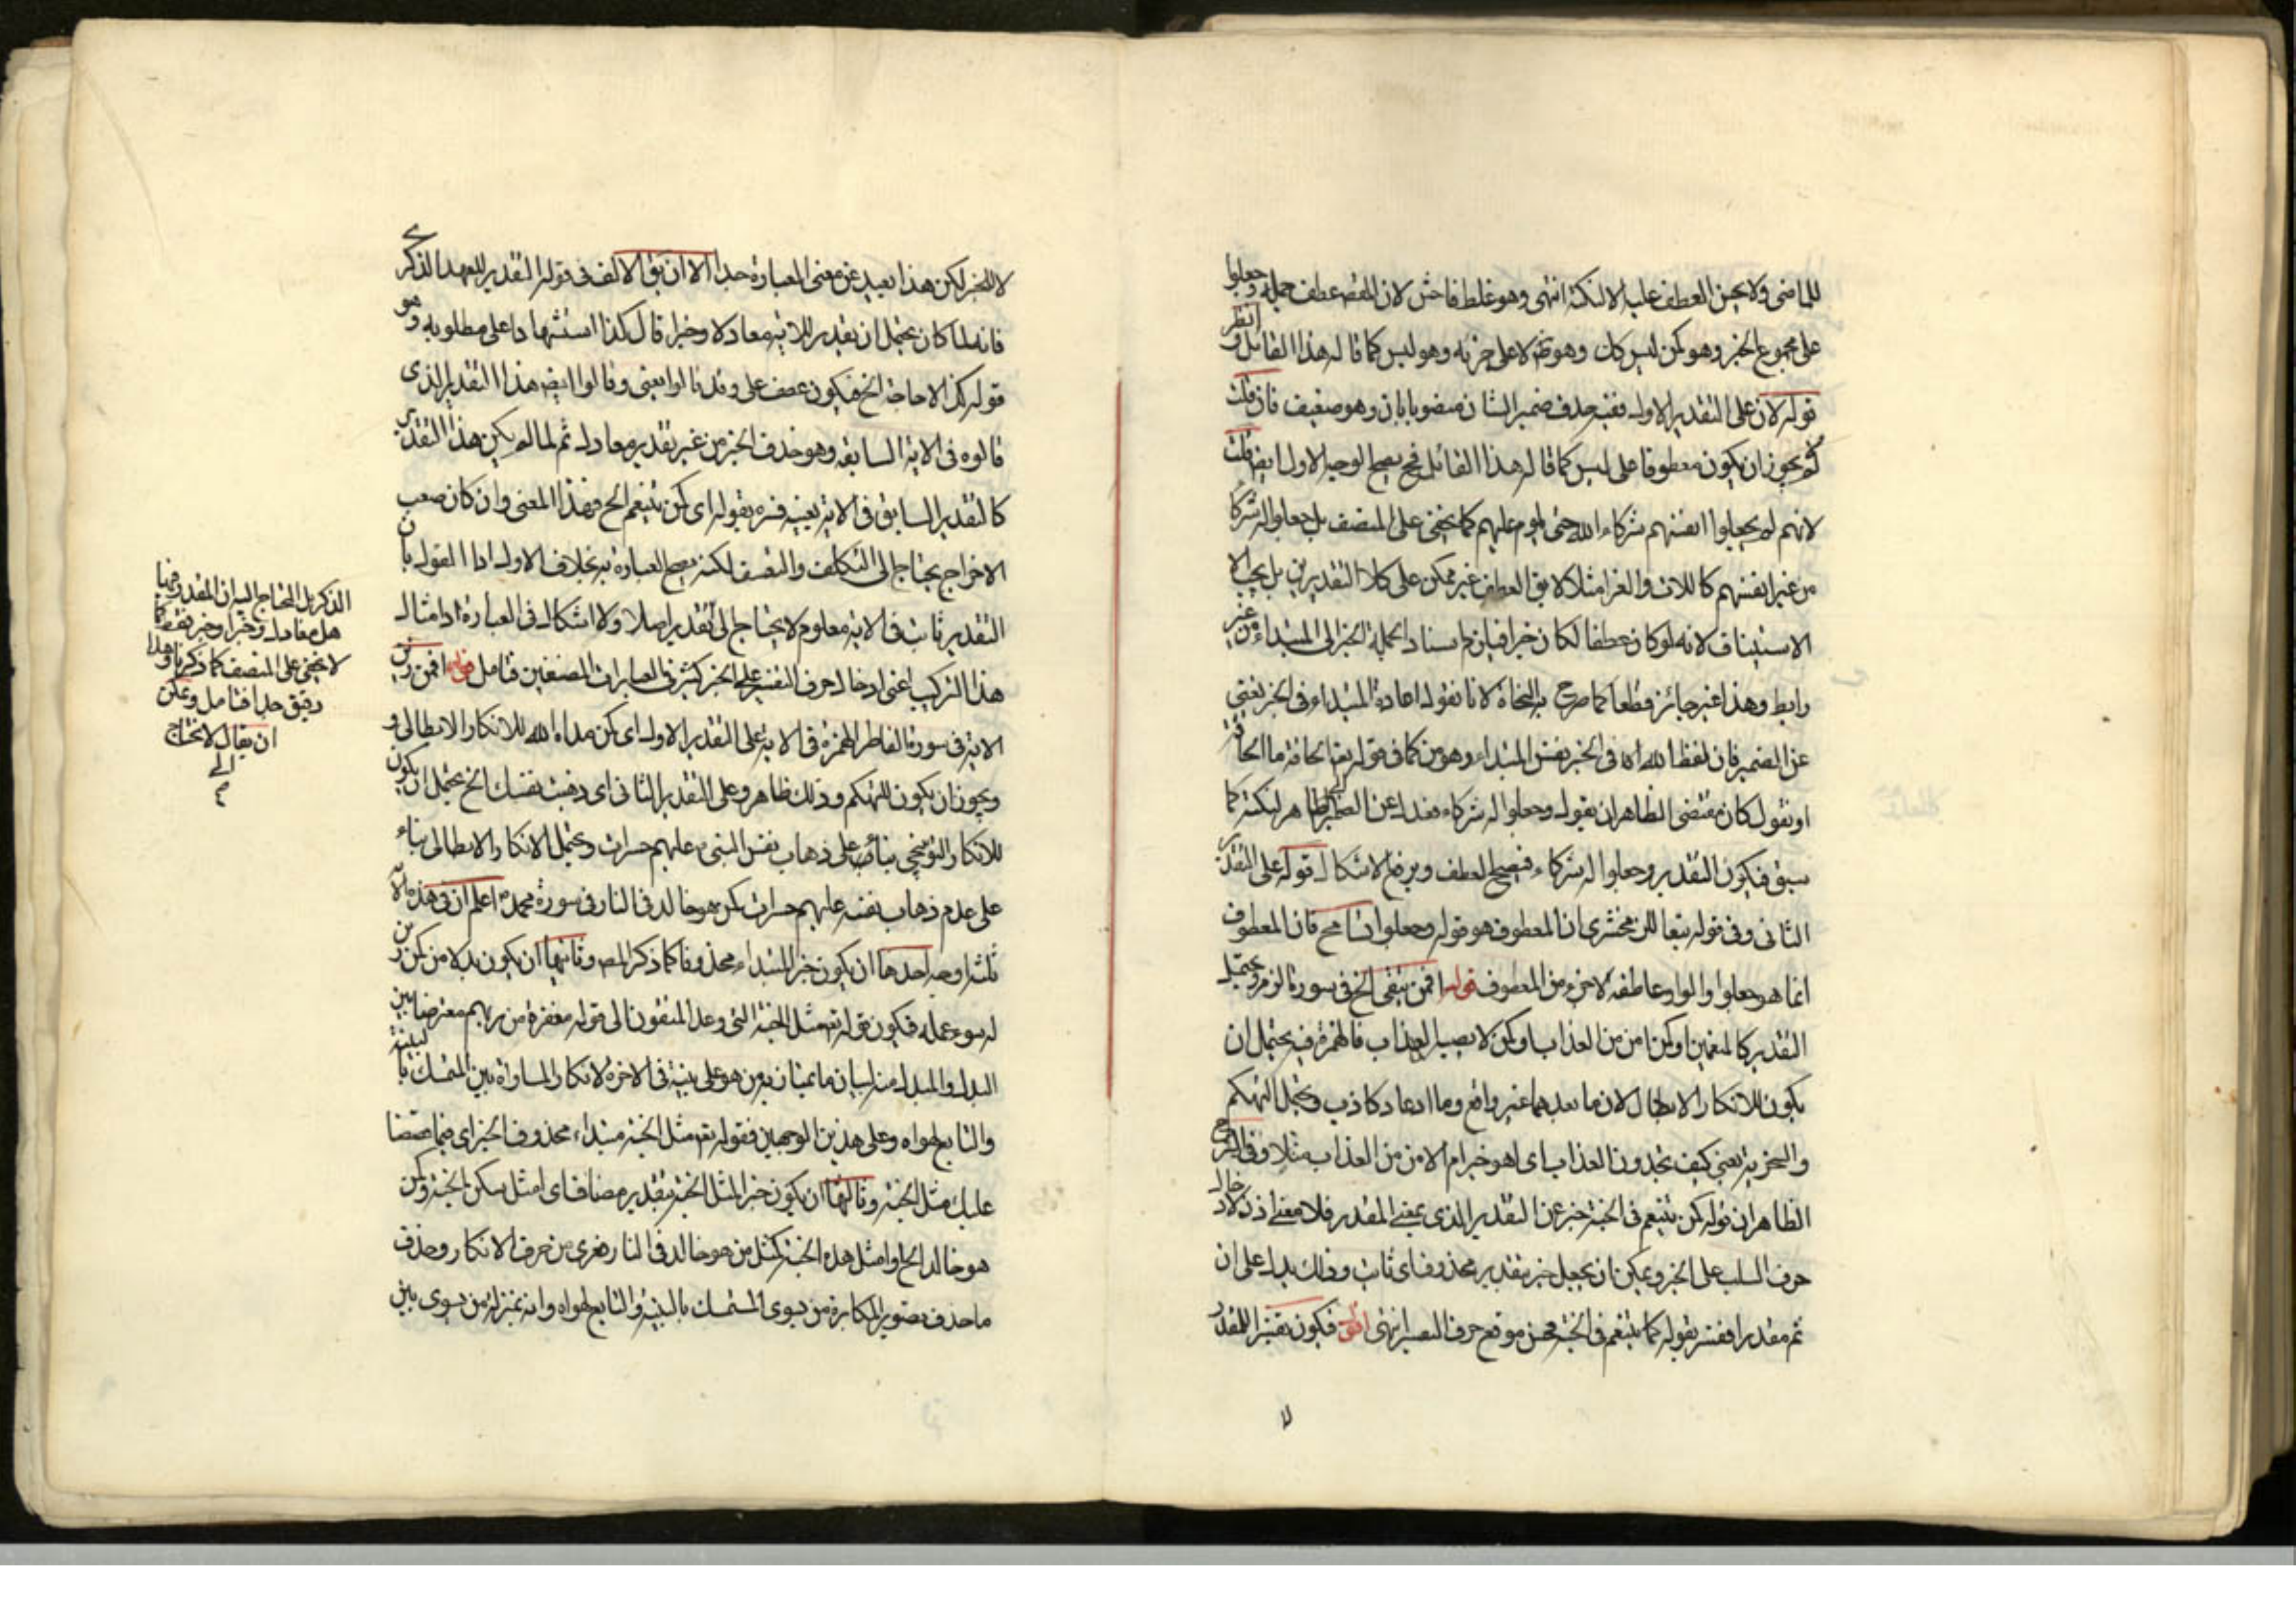 للماضى ولا يحسن العطف عليه الا لنكتة انتهى وهو غلط فاحش لان المقصد عطف جملة وجعلوا
على مجموع الخبر وهو كمن ليس كك وهو تم لا على جزئه وهو ليس كما قاله هذا القائل انظر
قوله لان على التقدير الاول فيه حذف ضمير الشان منصوبا بان وهو ضعيف فان قلت
لم يجوز ان يكون معطوفا على ليس كما قاله هذا القائل فح يصح الوجه الاول ايض قلت
لانهم لم يجعلوا انفسهم شركاء الله حتى يلوم عليهم كما يخفى على المنصف بل جعلوا له شركا
من غير انفسهم كاللات والغزا مثلا لا يق العطف غير ممكن على كلا التقديرين بل يجب الا
الاستيناف لانه لو كان عطفا لكان خبرا فيلزم اسناد الجملة الخبر الى المبتداء من غير
رابط وهذا غير جائز قطعا كما صرح به النحاة لانا نقول اعادة المبتداء فى الخبر يغنى
عن الضمير فان لفظ الله فى الخبر نفس المبتداء وهو من كما فى قوله تعالى الحاقة ما الحاقة
او نقول كان مقتضى الظاهر ان يقول وجعلوا له شركاء فعدل عن الضمير الى الظاهر لنكتة كما
سبق فيكون التقدير وجعلوا له شركاء فيصح العطف ويرفع الاشكال قوله على التقدير
الثانى وفى قوله تبعا للزمخشرى ان المعطوف هو قوله وجعلوا تسامح فان المعطوف
انما هو جعلوا والواو عاطفة لا جزء من المعطوف قوله افمن يتقى الخ فى سورة الزمر ويحتمل
التقدير كالمنعمين او كمن امن من العذاب او كمن لا يصيبه العذاب فالهمزة فيه يحتمل ان
يكون للانكار الابطالى لان ما بعدها غير واقع وما ادعاه كاذب ويحتمل التهكم
والسخرية يعنى كيف تجدون العذاب اى اهو خير ام الامن من العذاب مثلا وفى الشرح
الظاهر ان قوله كمن يتنعم فى الجنة خبر عن التقدير الذى بمعنى المقدر فلا معنى اذن لادخال
حرف السلب على الخبر ويمكن ان يجعل خبره بتقدير محذوف اى ثابت وذلك بناء على ان
ثم مقدرا ففسر بقوله كما يتنعم فى الجنة فحسن موقع حرف التفسير انتهى اقول فيكون تفسيرا للمقدر
لا للخبر لكن هذا بعيد عن معنى العبارة جدا الا ان يق الالف فى قوله التقدير للعهد الذكرى
فانه لما كان يحتمل ان تقدير للاية معادلا وخبرا قال كذا استشهادا على مطلوبه وهو
قوله كذا لا حاجة الخ فيكون عطف على وقد قالوا يعنى وقالوا ايض هذا التقدير الذى
قالوه فى الاية السابقة وهو حذف الخبر من غير تقدير معادل ثم لما لم يكن هذا التقدير
كالتقدير السابق فى الاية بعينه فسره بقوله اى كمن يتنعم الخ فهذا المعنى وان كان صعب
الاخراج يحتاج الى التكلف والتعسف لكنه يصح العبارة به بخلاف الاول اذا القول بان
التقدير ثابت فى الاية معلوم لا يحتاج الى تقدير اصلا ولا اشكال فى العبارة اذ امثال
هذا التركيب اعنى ادخال حرف التفسير على الخبر كثير فى العبارات المصنفين فتامل قوله افمن زين
الاية فى سورة الفاطر الهمزة فى الاية على التقدير الاول اى كمن هداه الله للانكار الابطالى و
ويجوز ان يكون للتهكم وذلك ظاهر وعلى التقدير الثانى اى ذهبت نفسك الخ يحتمل ان يكون
للانكار التوبيخى بناء على ذهاب نفس النبى عليهم حسرات ويحتمل الانكار الابطالى بناء
على عدم ذهاب نفسه عليهم حسرات كمن هو خالد فى النار فى سورة محمد اعلم ان فى هذه الاية
ثلثة اوجه احدها ان يكون خبر المبتداء محذوفا كما ذكر المص وثانيها ان يكون بدلا من كمن زين
له سوء عمله فيكون قوله تعالى مثل الجنة التى وعد المتقون الى قوله مغفرة من ربهم معترضا بين
البدل والمبدل منه لبيان ما يمتاز به من هو على بينة فى الاخرة لانكار المساواة بين المتمسك بالبينة
والتابع لهواه وعلى هذين الوجهين فقوله تعالى مثل الجنة مبتداء محذوف الخبر اى فيما قصصنا
عليك مثل الجنة وثالثها ان يكون خبرا لمثل الجنة بتقدير مضاف اى امثل سكن الجنة كمن
هو خالد الخ او امثل هذه الجنة كمثل من هو خالد فى النار فعرى من حرف الانكار وحذف
ما حذف تصوير المكابرة من يسوى المتمسك بالبينة والتابع لهواه وانه بمنزلة من يسوى بين
الذكر بل المحتاج اليه ان المقدر فيها
هل معادل وخبر او خبر فقط كما
لا يخفى على المنصف كما ذكرنا وهذا
دقيق جدا فتامل ويمكن
ان يقال لا تحتاج
الى
م